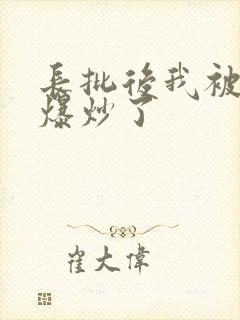 長批後我被
爆炒了
崔大偉